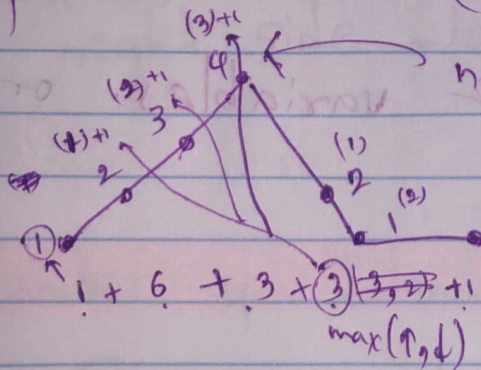 (3)+1
4
n
(2)+1
3
(1)
(1)+1
2
2
1 (2)
1
1 + 6 + 3 + 3 +1
max(↑,↓)